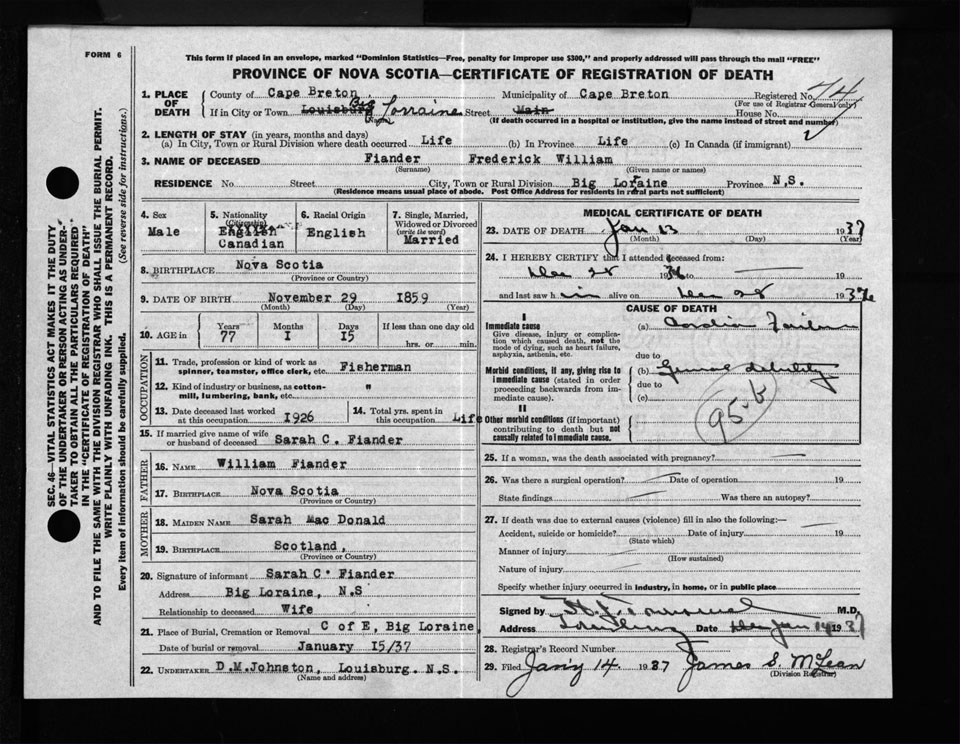 FORM 6
This form if placed in an envelope, marked "Dominion Statistics—Free, penalty for improper use $300," and properly addressed will pass through the mail "FREE"
PROVINCE OF NOVA SCOTIA—CERTIFICATE OF REGISTRATION OF DEATH
SEC. 46—VITAL STATISTICS ACT MAKES IT THE DUTY
OF THE UNDERTAKER OR PERSON ACTING AS UNDER-
TAKER TO OBTAIN ALL THE PARTICULARS REQUIRED
IN THE "CERTIFICATE OF REGISTRATION OF DEATH"
AND TO FILE THE SAME WITH THE DIVISION REGISTRAR WHO SHALL ISSUE THE BURIAL PERMIT.
WRITE PLAINLY WITH UNFADING INK. THIS IS A PERMANENT RECORD.
Every item of information should be carefully supplied. (See reverse side for instructions.)
1. PLACE OF DEATH
County of Cape Breton Municipality of Cape Breton Registered No. 74
(For use of Registrar General only)
If in City or Town Louisburg Big Lorraine Street Main House No.
(Name) (If death occurred in a hospital or institution, give the name instead of street and number)
2. LENGTH OF STAY (in years, months and days)
(a) In City, Town or Rural Division where death occurred Life (b) In Province Life (c) In Canada (if immigrant)
3. NAME OF DECEASED Fiander Frederick William
(Surname) (Given name or names)
RESIDENCE No. Street City, Town or Rural Division Big Lorraine Province N.S.
(Residence means usual place of abode. Post Office Address for residents in rural parts not sufficient)
4. Sex Male
5. Nationality (Citizenship) English Canadian
6. Racial Origin English
7. Single, Married, Widowed or Divorced (write the word) Married
8. BIRTHPLACE Nova Scotia
(Province or Country)
9. DATE OF BIRTH November 29 1859
(Month) (Day) (Year)
10. AGE in Years 77 Months 1 Days 15 If less than one day old hrs. or min.
OCCUPATION
11. Trade, profession or kind of work as spinner, teamster, office clerk, etc. Fisherman
12. Kind of industry or business, as cotton-mill, lumbering, bank, etc. "
13. Date deceased last worked at this occupation 1926
14. Total yrs. spent in this occupation Life
15. If married give name of wife or husband of deceased Sarah C. Fiander
FATHER
16. NAME William Fiander
17. BIRTHPLACE Nova Scotia
(Province or Country)
MOTHER
18. MAIDEN NAME Sarah Mac Donald
19. BIRTHPLACE Scotland,
(Province or Country)
20. Signature of informant Sarah C. Fiander
Address Big Loraine, N.S
Relationship to deceased Wife
21. Place of Burial, Cremation or Removal C of E, Big Loraine,
Date of burial or removal January 15/37
22. UNDERTAKER D.M.Johnston, Louisburg. N.S.
(Name and address)
MEDICAL CERTIFICATE OF DEATH
23. DATE OF DEATH Jan 13 1937
(Month) (Day) (Year)
24. I HEREBY CERTIFY that I attended deceased from:
Dec 28 1936 to 19
and last saw him alive on Dec 28 1936
CAUSE OF DEATH
I
Immediate cause
Give disease, injury or complication which caused death, not the mode of dying, such as heart failure, asphyxia, asthenia, etc.
(a) Cardiac Failure
due to
Morbid conditions, if any, giving rise to immediate cause (stated in order proceeding backwards from immediate cause).
(b) General debility
due to
(c)
95-b
II
Other morbid conditions (if important) contributing to death but not causally related to immediate cause.
25. If a woman, was the death associated with pregnancy?
26. Was there a surgical operation? Date of operation 19
State findings Was there an autopsy?
27. If death was due to external causes (violence) fill in also the following:—
Accident, suicide or homicide? Date of injury 19
(State which)
Manner of injury
(How sustained)
Nature of injury
Specify whether injury occurred in industry, in home, or in public place
Signed by M.D.
Address Date Jan 14 1937
28. Registrar's Record Number
29. Filed Jan'y 14 1937 James S. McLean
(Division Registrar)